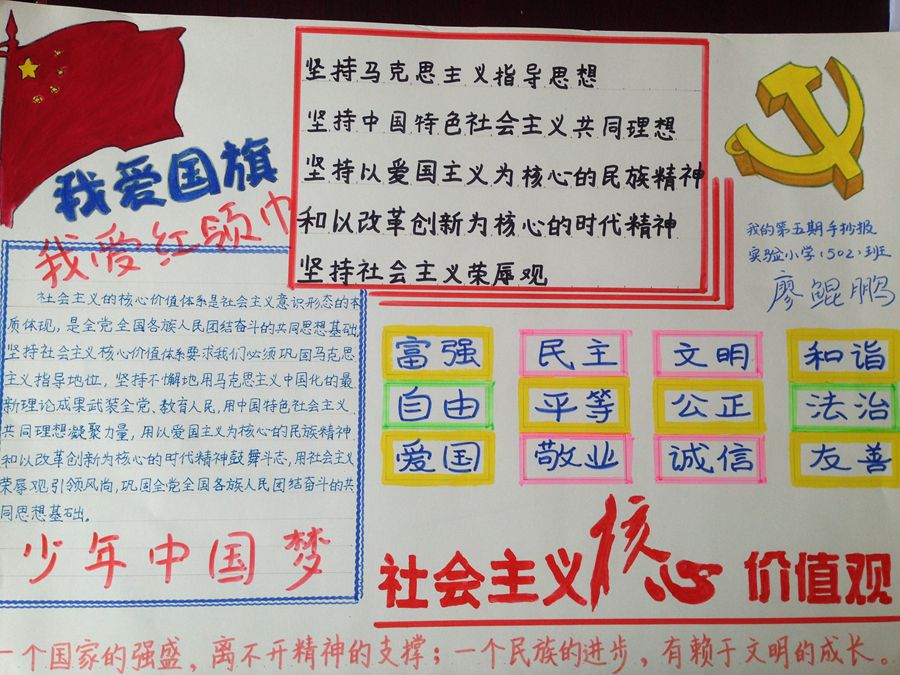 我爱国旗
我爱红领巾
坚持马克思主义指导思想
坚持中国特色社会主义共同理想
坚持以爱国主义为核心的民族精神
和以改革创新为核心的时代精神
坚持社会主义荣辱观
我的第五期手抄报
实验小学(502)班
廖鲲鹏
社会主义的核心价值体系是社会主义意识形态的本
质体现，是全党全国各族人民团结奋斗的共同思想基础
坚持社会主义核心价值体系要求我们必须巩固马克思
主义指导地位，坚持不懈地用马克思主义中国化的最
新理论成果武装全党、教育人民，用中国特色社会主义
共同理想凝聚力量，用以爱国主义为核心的民族精神
和以改革创新为核心的时代精神鼓舞斗志，用社会主义
荣辱观引领风尚，巩固全党全国各族人民团结奋斗的共
同思想基础。
少年中国梦
富强 民主 文明 和谐
自由 平等 公正 法治
爱国 敬业 诚信 友善
社会主义核心价值观
一个国家的强盛，离不开精神的支撑；一个民族的进步，有赖于文明的成长。